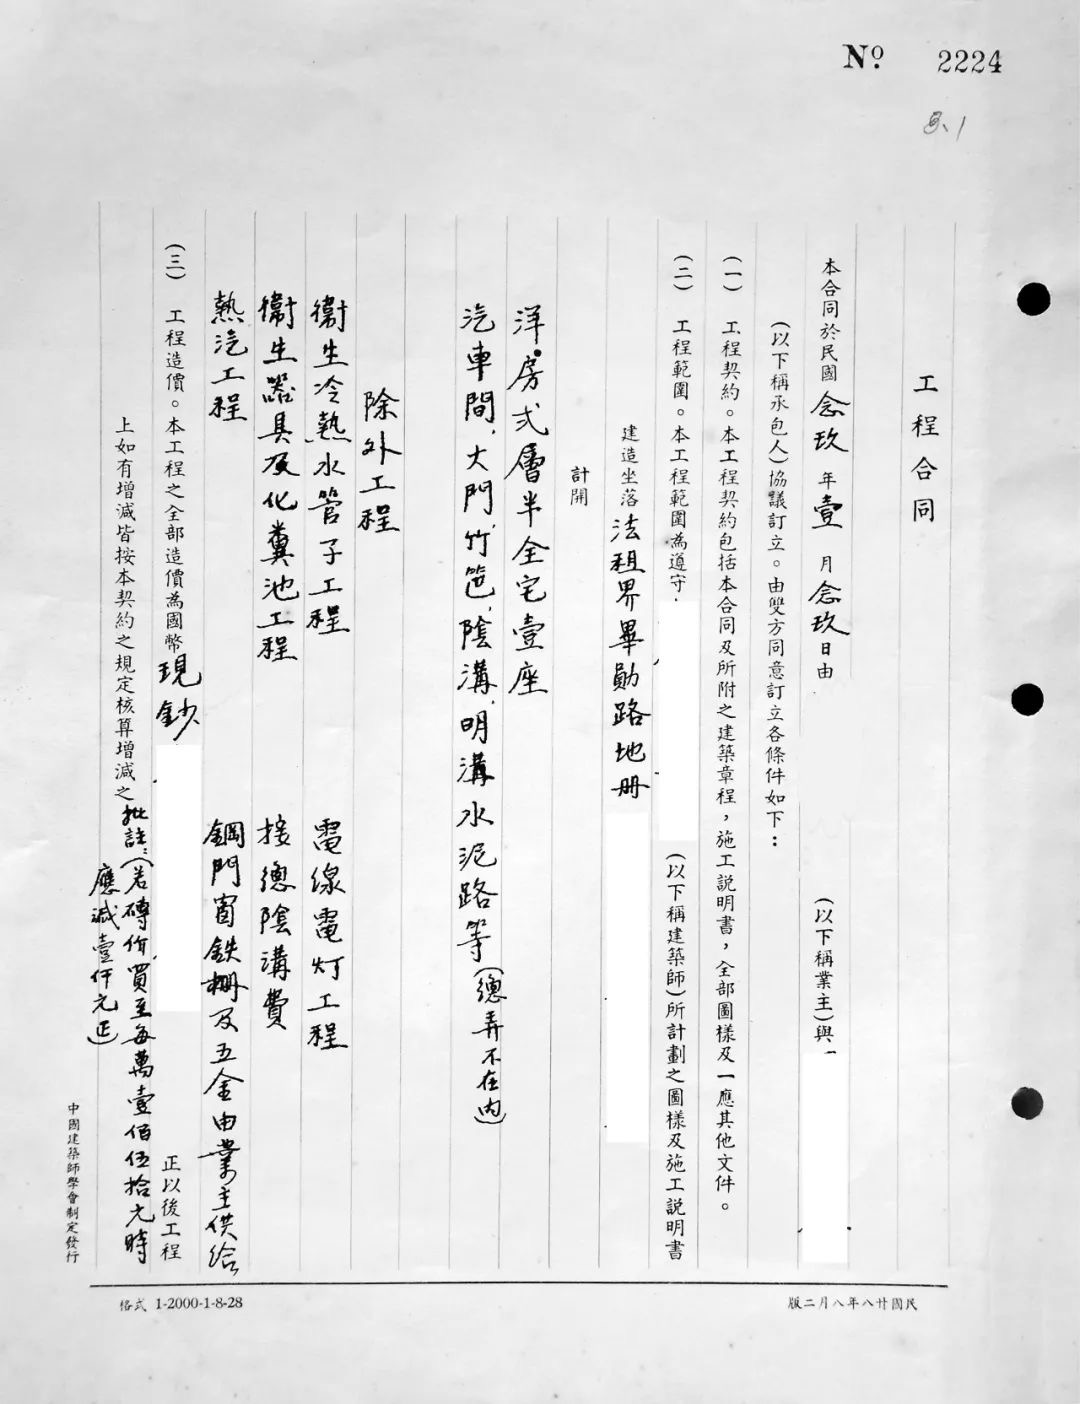 Nº 2224
工程合同
本合同於民國念玖年壹月念玖日由
(以下稱業主)與
(以下稱承包人)協議訂立。由雙方同意訂立各條件如下：
(一) 工程契約。本工程契約包括本合同及所附之建築章程，施工説明書，全部圖樣及一應其他文件。
(二) 工程範圍。本工程範圍為遵守
(以下稱建築師)所計劃之圖樣及施工説明書
建造坐落法租界畢勛路地册
計開
洋房式層半全宅壹座
汽車間、大門、竹笆、陰溝、明溝水泥路等(總弄不在內)
除外工程
衛生冷熱水管子工程 電線電灯工程
衛生器具及化糞池工程 接總陰溝費
熱汽工程 鋼門窗鉄柵及五金由業主供給
(三) 工程造價。本工程之全部造價為國幣現鈔
正以後工程
上如有增減皆按本契約之規定核算增減之 批註：(若磚價買至每萬壹佰伍拾元時
應減壹仟元正)
中國建築師學會制定發行
格式 1-2000-1-8-28
民國廿八年八月二版